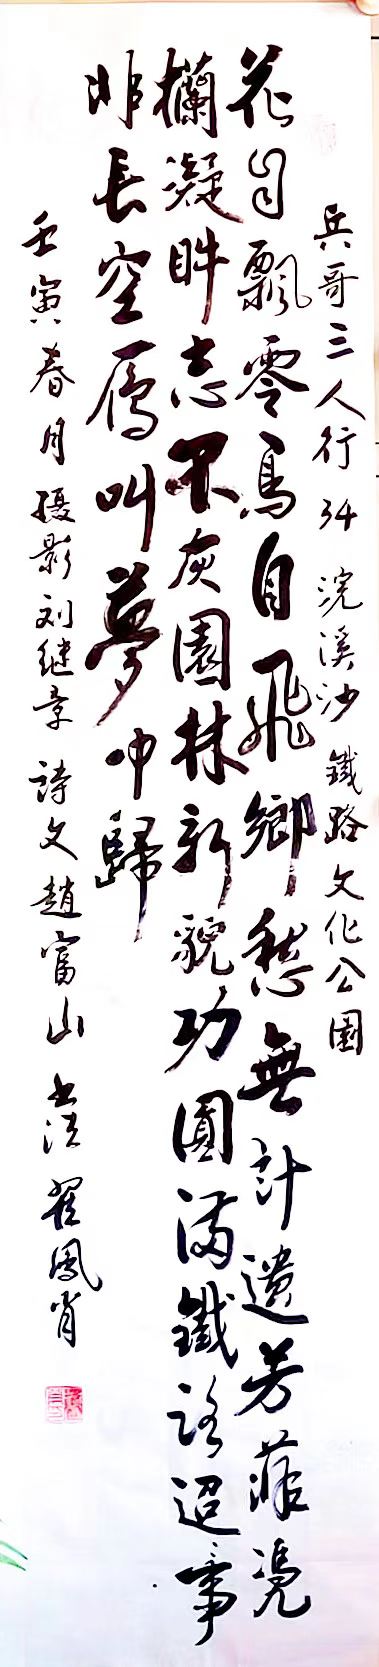 兵哥三人行 34 浣溪沙 鐵路文化公園
花自飄零鳥自飛鄉愁無計遺芳菲凴
欄凝眸志不灰園林新貌功圓滿鐵路迢事
非長空雁叫夢中歸
壬寅春月攝影刘继章詩文趙富山书法翟鳳肖